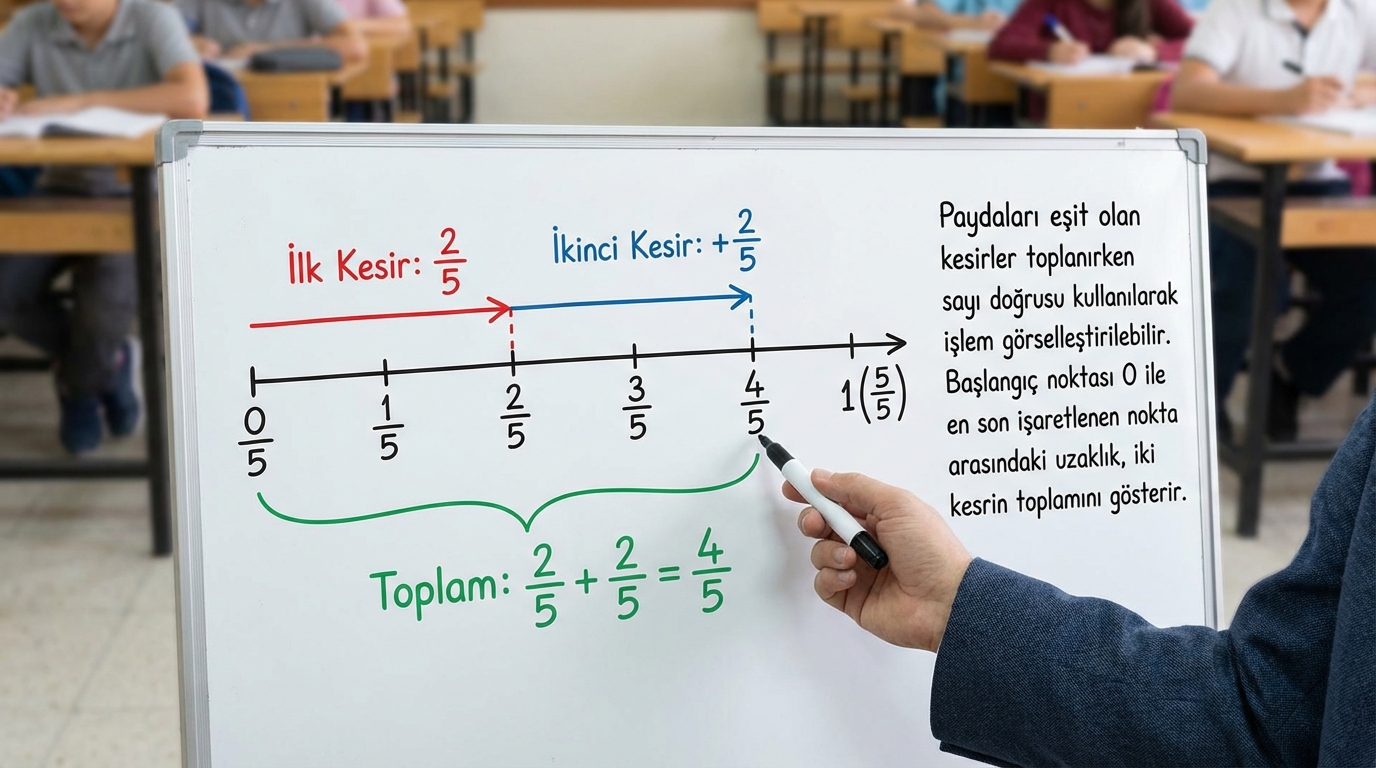 İlk Kesir: 2/5
İkinci Kesir: + 2/5
0/5 1/5 2/5 3/5 4/5 1(5/5)
Toplam: 2/5 + 2/5 = 4/5
Paydaları eşit olan
kesirler toplanırken
sayı doğrusu kullanılarak
işlem görselleştirilebilir.
Başlangıç noktası 0 ile
en son işaretlenen nokta
arasındaki uzaklık, iki
kesrin toplamını gösterir.